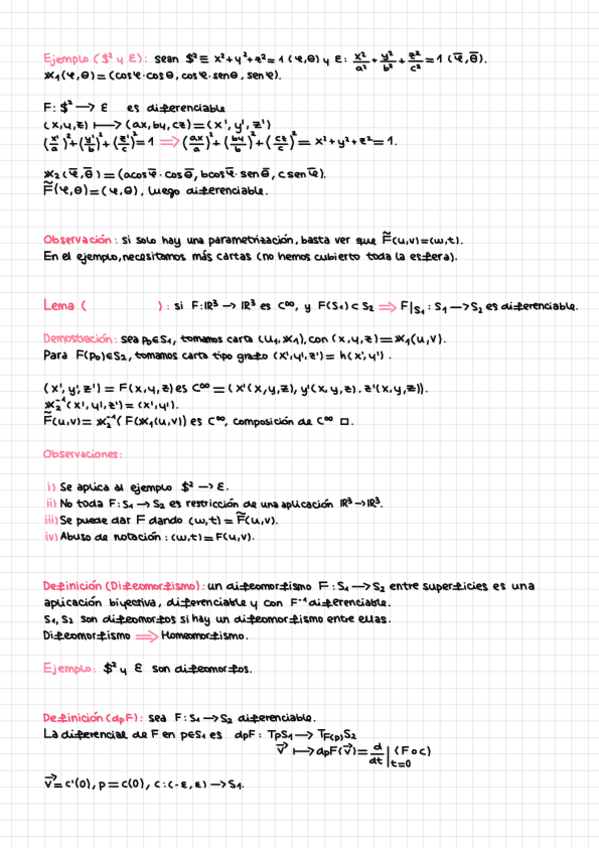 Ejemplo ($² y Ɛ): sean $² ≡ x²+y²+z²=1 (φ,θ) y Ɛ: x²/a² + y²/b² + z²/c² = 1 (φ̄,θ̄).
𝕩₁(φ,θ)=(cosφ·cosθ, cosφ·senθ, senφ).
F: $² → Ɛ es diferenciable
(x,y,z) ↦ (ax,by,cz)=(x',y',z')
(x'/a)²+(y'/b)²+(z'/c)²=1 ⇒ (ax/a)²+(by/b)²+(cz/c)²= x²+y²+z²=1.
𝕩₂(φ̄,θ̄)=(acosφ̄·cosθ̄, bcosφ̄·senθ̄, csenφ̄).
F̃(φ,θ)=(φ,θ), luego diferenciable.
Observación: si solo hay una parametrización, basta ver que F̃(u,v)=(w,t).
En el ejemplo, necesitamos más cartas (no hemos cubierto toda la esfera).
Lema ( ): si F:ℝ³ → ℝ³ es C∞, y F(S₁)⊂S₂ ⇒ F|S₁ : S₁ → S₂ es diferenciable.
Demostración: sea p₀∈S₁, tomamos carta (U₁,𝕩₁), con (x,y,z)=𝕩₁(u,v).
Para F(p₀)∈S₂, tomamos carta tipo grafo (x',y',z')= h(x',y').
(x',y',z')=F(x,y,z) es C∞ =(x'(x,y,z), y'(x,y,z), z'(x,y,z)).
𝕩₂⁻¹(x',y',z')=(x',y').
F̃(u,v)=𝕩₂⁻¹(F(𝕩₁(u,v)) es C∞, composición de C∞ □.
Observaciones:
i) Se aplica al ejemplo $² → Ɛ.
ii) No toda F:S₁ → S₂ es restricción de una aplicación ℝ³→ℝ³.
iii) Se puede dar F dando (w,t)=F̃(u,v).
iv) Abuso de notación: (w,t)=F(u,v).
Definición (Difeomorfismo): un difeomorfismo F:S₁ → S₂ entre superficies es una
aplicación biyectiva, diferenciable y con F⁻¹ diferenciable.
S₁,S₂ son difeomorfos si hay un difeomorfismo entre ellas.
Difeomorfismo ⇒ Homeomorfismo.
Ejemplo: $² y Ɛ son difeomorfos.
Definición (dpF): sea F:S₁ → S₂ diferenciable.
La diferencial de F en p∈S₁ es dpF: TpS₁ → TF(p)S₂
v⃗ ↦ dpF(v⃗)= d/dt|t=0 (F∘c)
v⃗=c'(0), p=c(0), c:(-ε,ε) → S₁.